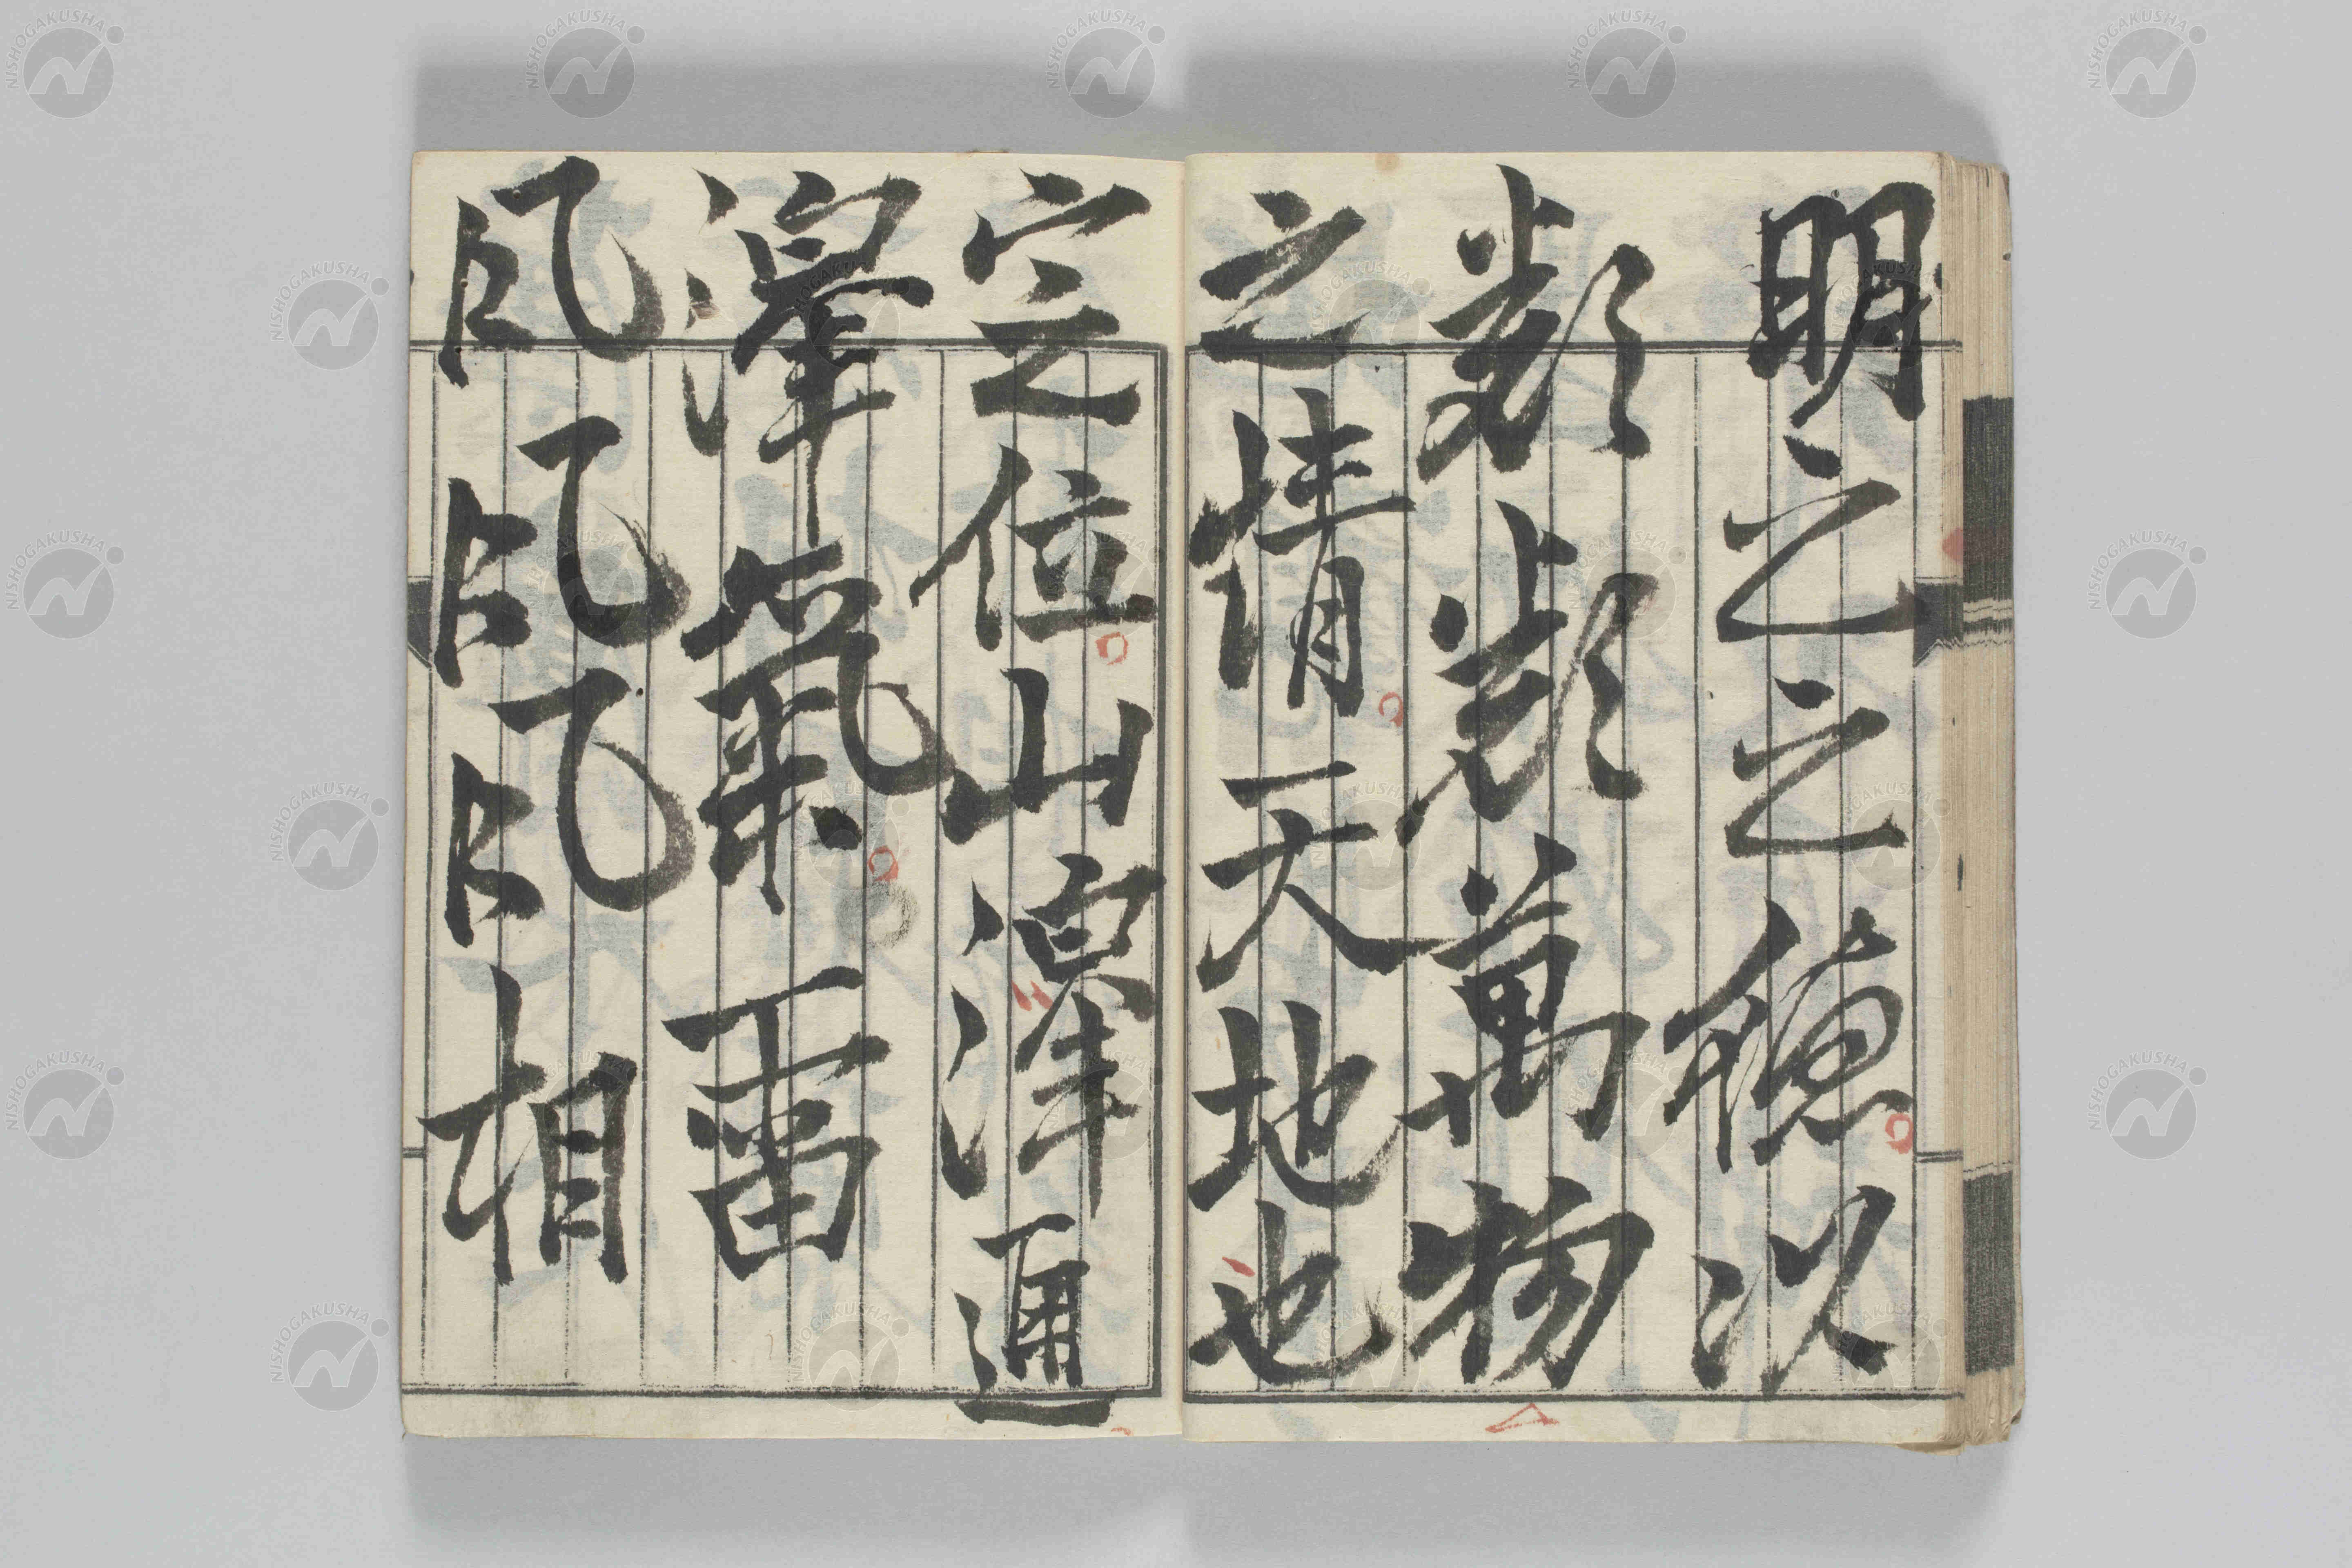 明之之德以
類類萬物
之情天地也
定位山澤通
澤氣雷
風風風相
NISHOGAKUSHA